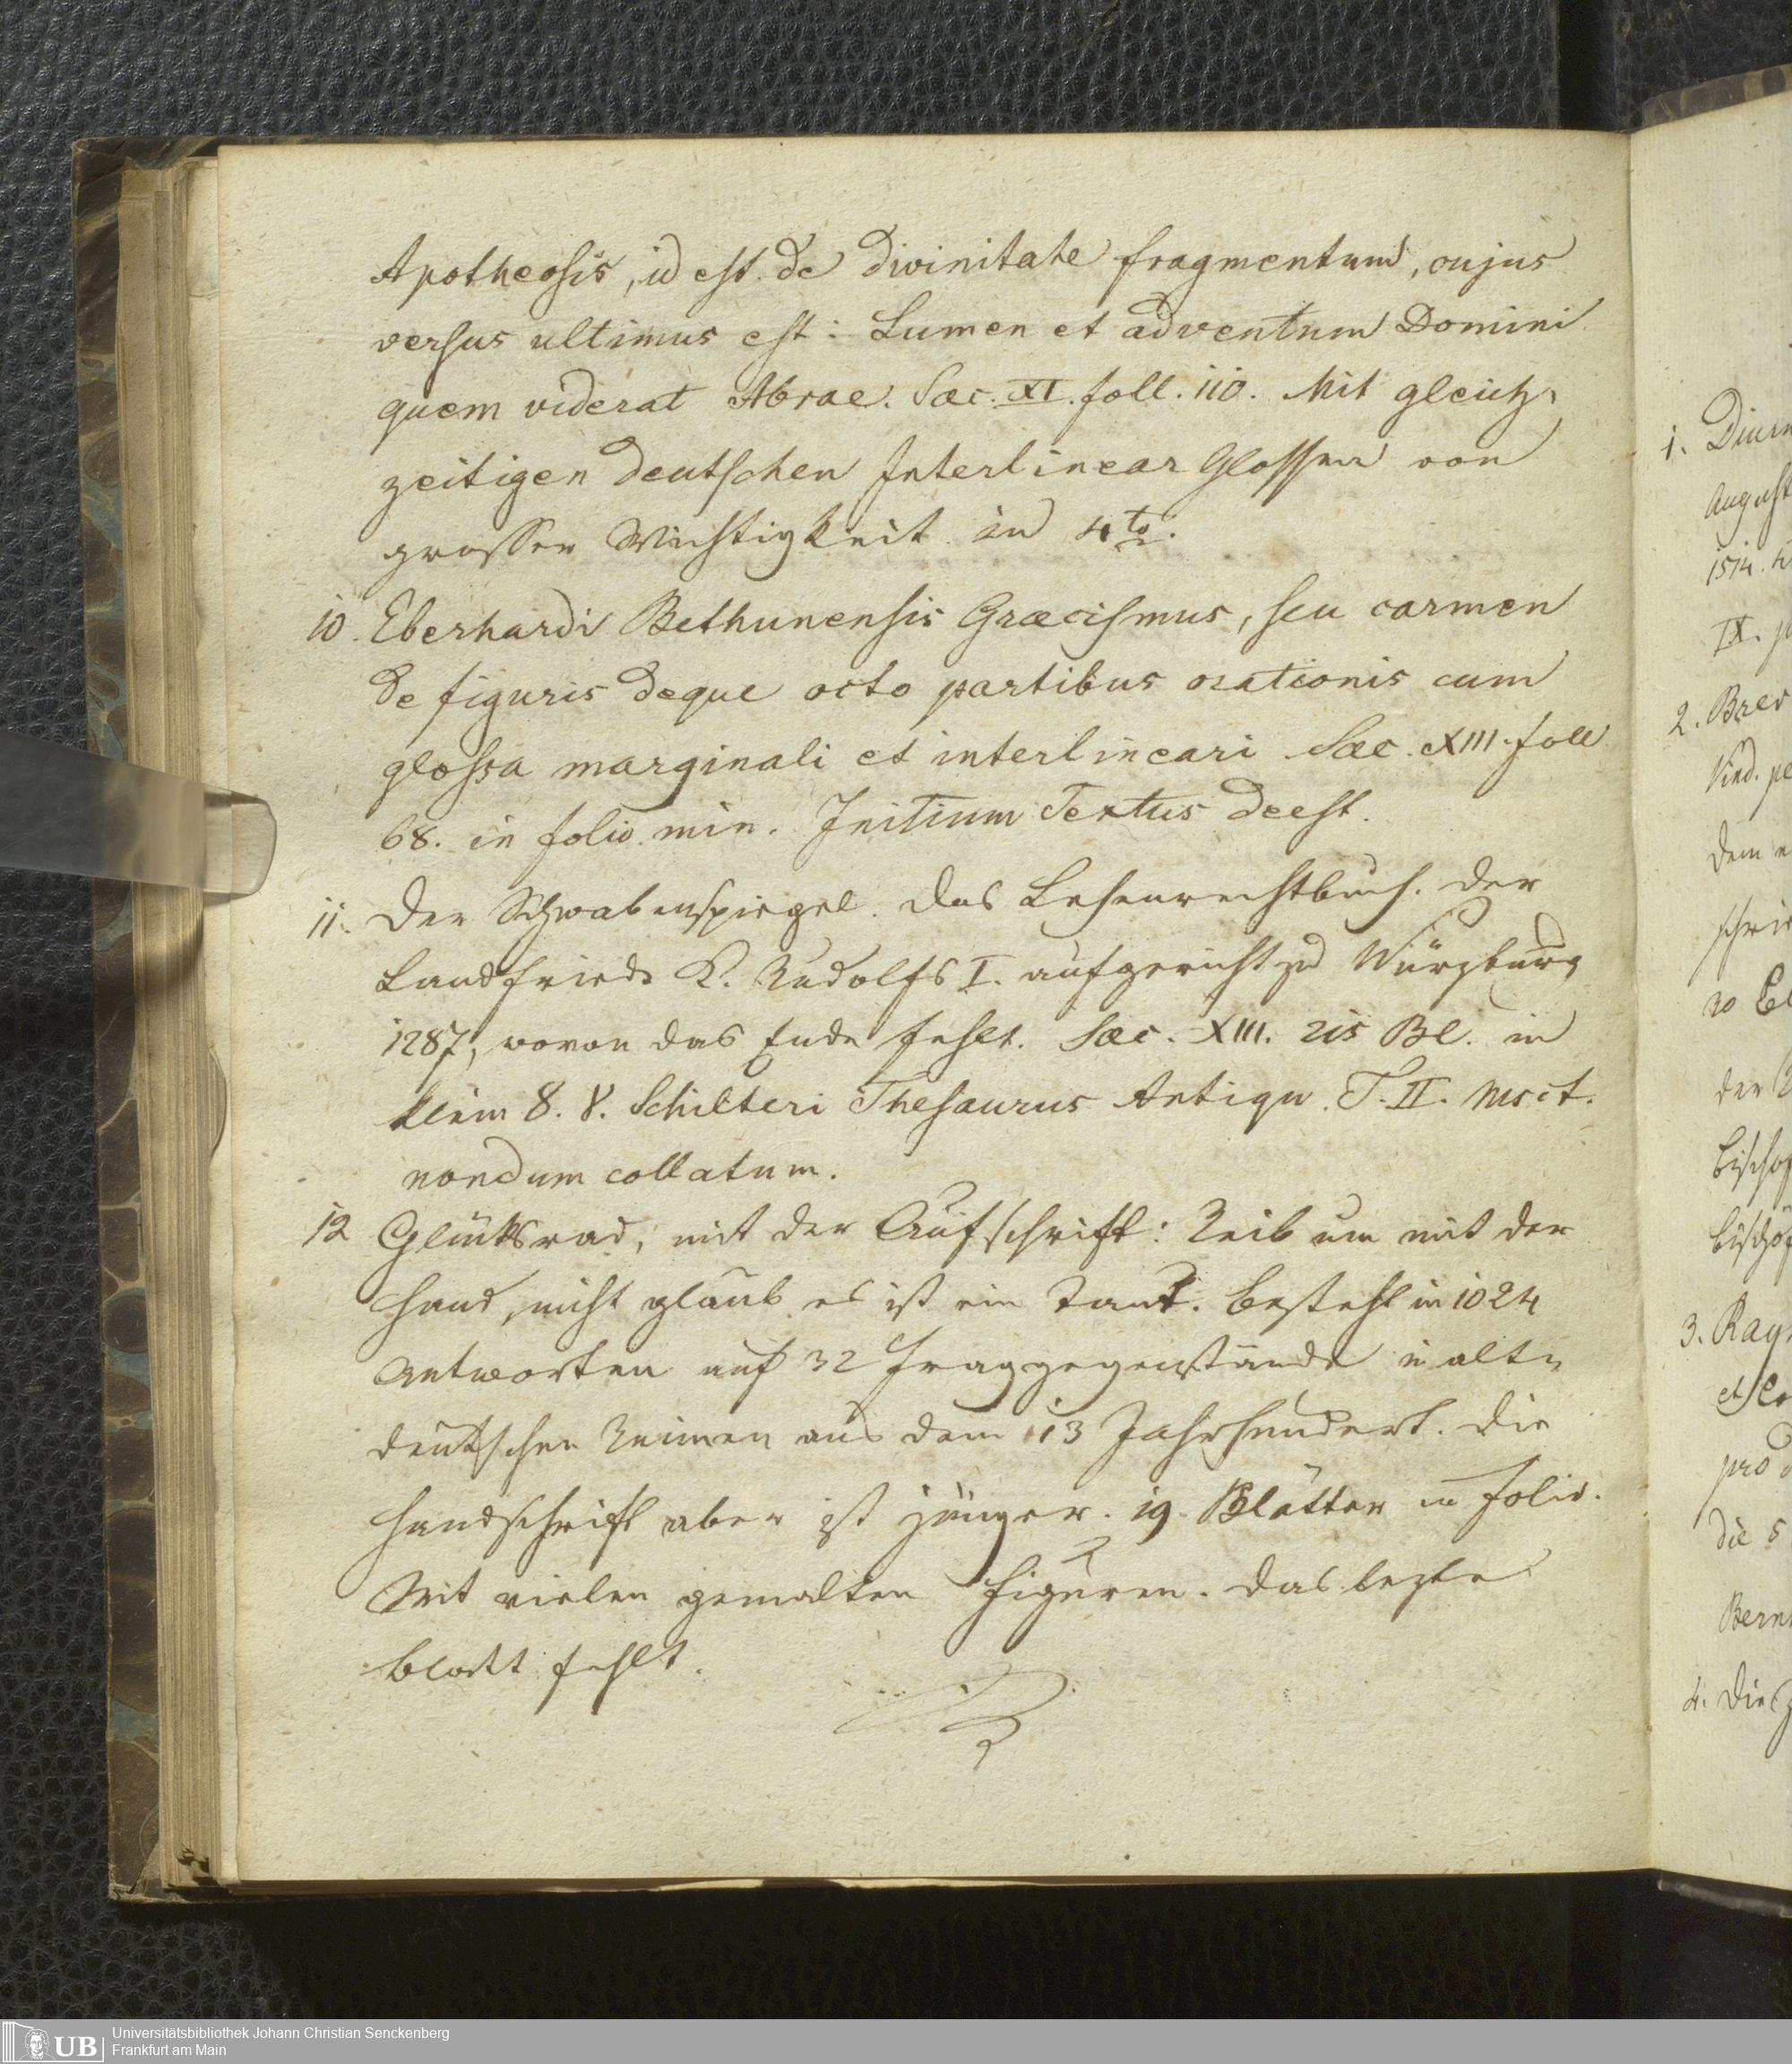 Apotheosis, id est de divinitate fragmentum, cujus
versus ultimus est: Lumen et adventum Domini
quem viderat Abrae. Saec. XI. foll. 110. Mit gleich-
zeitigen deutschen Interlinear Glossen von
grosser Wichtigkeit in 4to.
10. Eberhardi Bethunensis Graecismus, seu carmen
de figuris deque octo partibus orationis cum
glossa marginali et interlineari Saec. XIII. foll
68. in folio min. Initium Textus deest.
11. Der Schwabenspiegel. Das Lehenrechtbuch. Der
Landfriede K. Rudolfs I. aufgericht zu Würzburg
1287, wovon das Ende fehlt. Saec. XIII. 215 Bl. in
klein 8. V. Schilteri Thesaurus Antiqu. T. II. Msct.
nondum collatum.
12 Glücksrad, mit der Aufschrift: Reib um mit der
Hand, nicht glaub es ist ein Tant. Besteht in 1024
Antworten auf 32 Fraggegenstände in alt-
deutschen Reimen aus dem 13 Jahrhundert. Die
Handschrift aber ist jünger. 19. Blätter in Folio.
Mit vielen gemalten Figuren. Das lezte
Blatt fehlt.
1.
August
1514.
IX.
2. Brev
Vind.
dem
30
der
Bischof
3. Ray
et
pro
die 5
Bern
4. Die
UB
Universitätsbibliothek Johann Christian Senckenberg
Frankfurt am Main